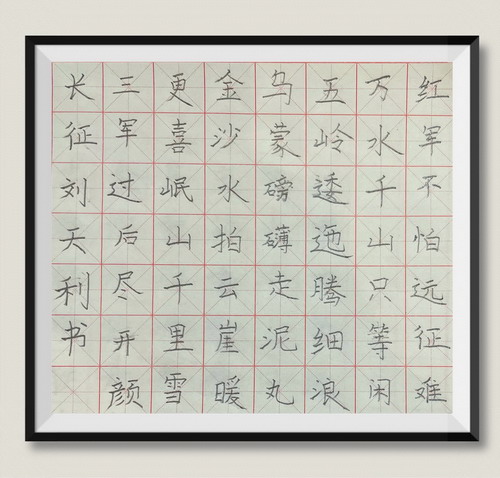 红军不怕远征难
万水千山只等闲
五岭逶迤腾细浪
乌蒙磅礴走泥丸
金沙水拍云崖暖
更喜岷山千里雪
三军过后尽开颜
长征刘天利书